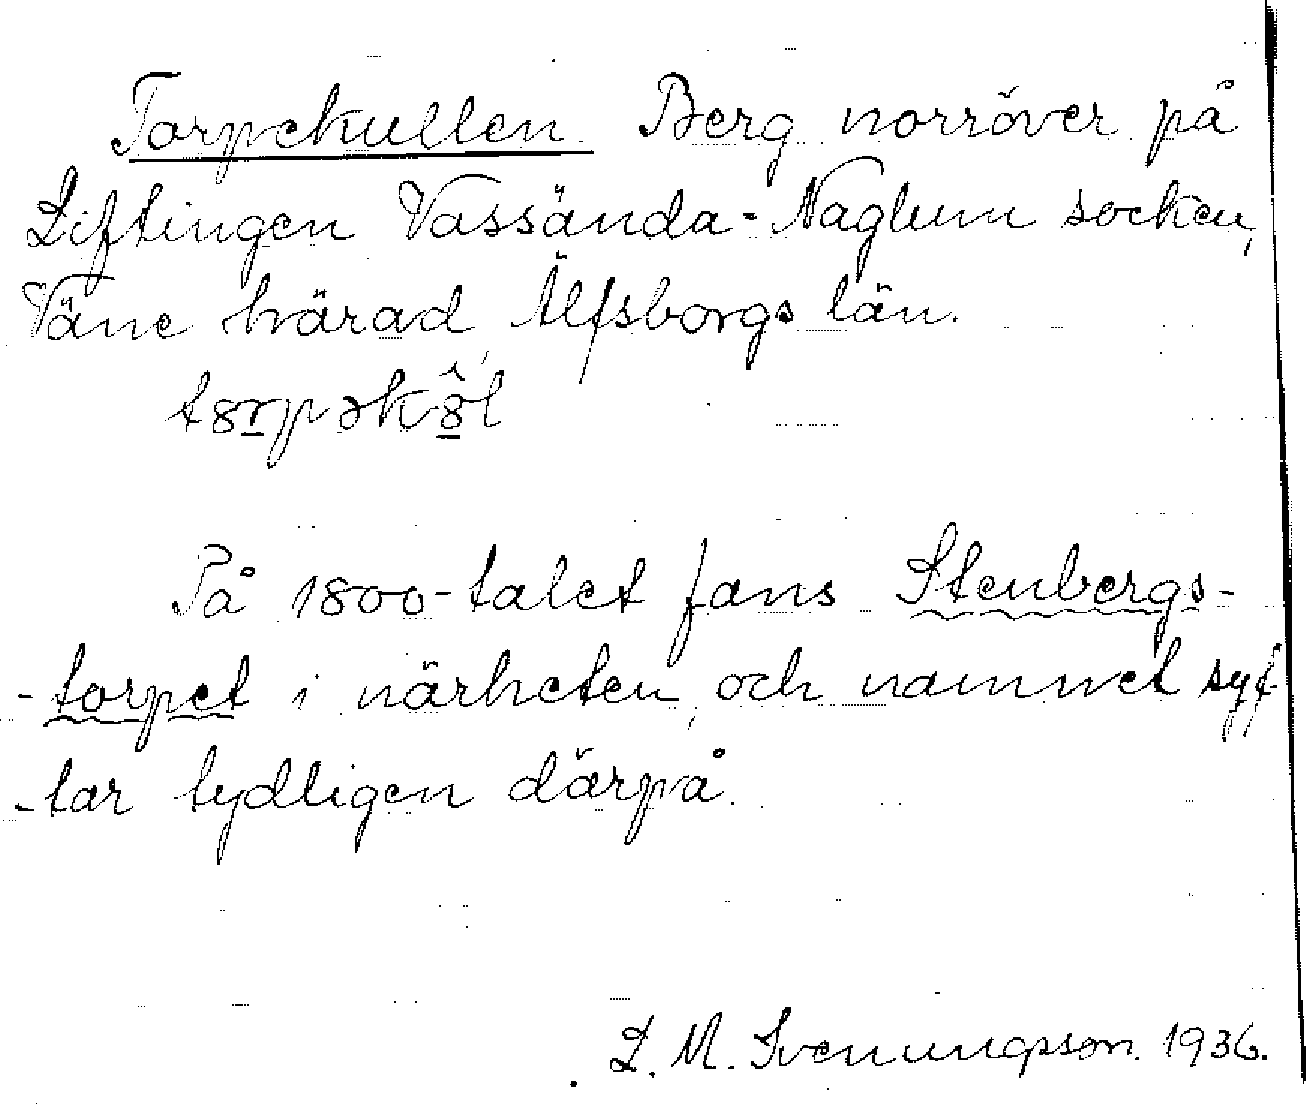 Torpekullen. Berg norröver på
Liftingen Vassända-Naglum socken,
Väne härad Älfsborgs län.
På 1800-talet fans Stenbergs-
-torpet i närheten, och namnet syf-
-tar tydligen därpå.
L. M. Svenungsson. 1936.